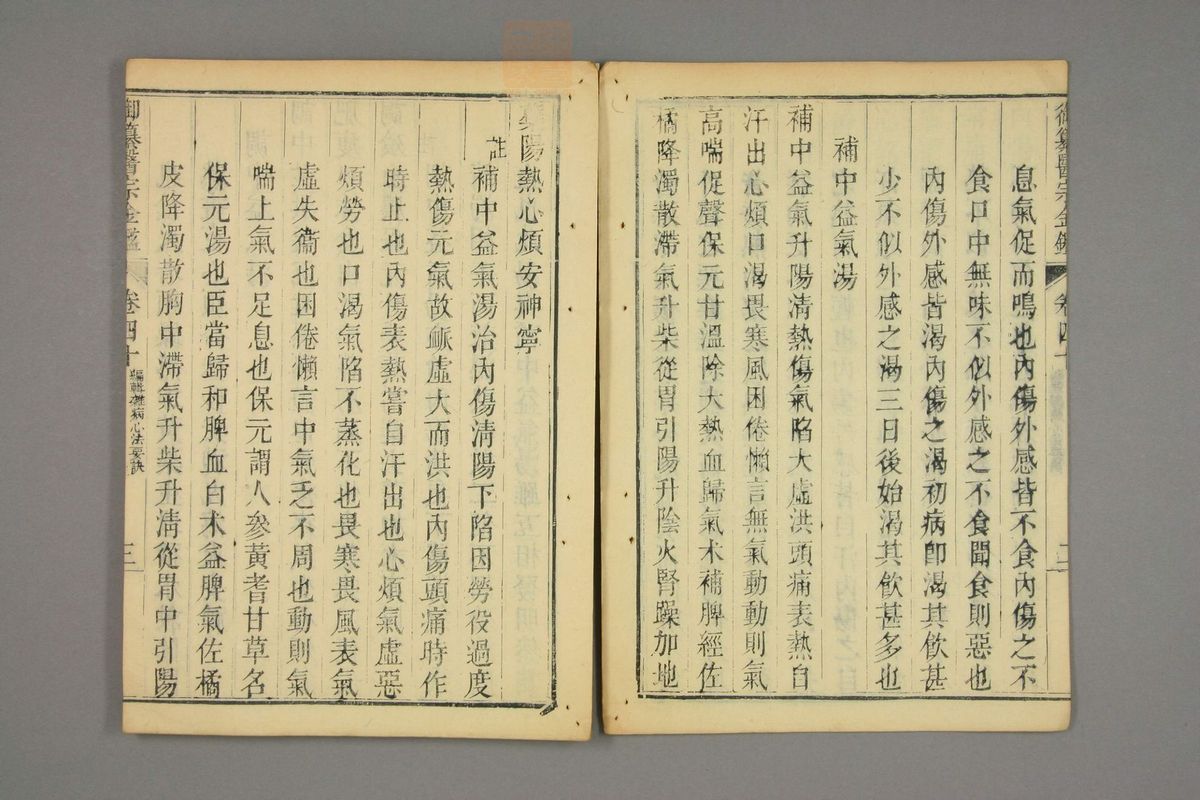 御纂醫宗金鑑
卷四十
二
息氣促而鳴也內傷外感皆不食內傷之不
食口中無味不似外感之不食聞食則惡也
內傷外感皆渴內傷之渴初病卽渴其飲甚
少不似外感之渴三日後始渴其飲甚多也
補中益氣湯
補中益氣升陽淸熱傷氣陷大虛洪頭痛表熱自
汗出心煩口渴畏寒風困倦懶言無氣動動則氣
高喘促聲保元甘溫除大熱血歸氣朮補脾經佐
橘降濁散滯氣升柴從胃引陽升陰火腎躁加地
陽熱心煩安神寧
註
補中益氣湯治內傷淸陽下陷因勞役過度
熱傷元氣故脈虛大而洪也內傷頭痛時作
時止也內傷表熱嘗自汗出也心煩氣虛惡
煩勞也口渴氣陷不蒸化也畏寒畏風表氣
虛失衞也困倦懶言中氣乏不周也動則氣
喘上氣不足息也保元謂人參黃耆甘草名
保元湯也臣當歸和脾血白朮益脾氣佐橘
皮降濁散胸中滯氣升柴升淸從胃中引陽
御纂醫宗金鑑
卷四十
編輯雜病心法要訣
三